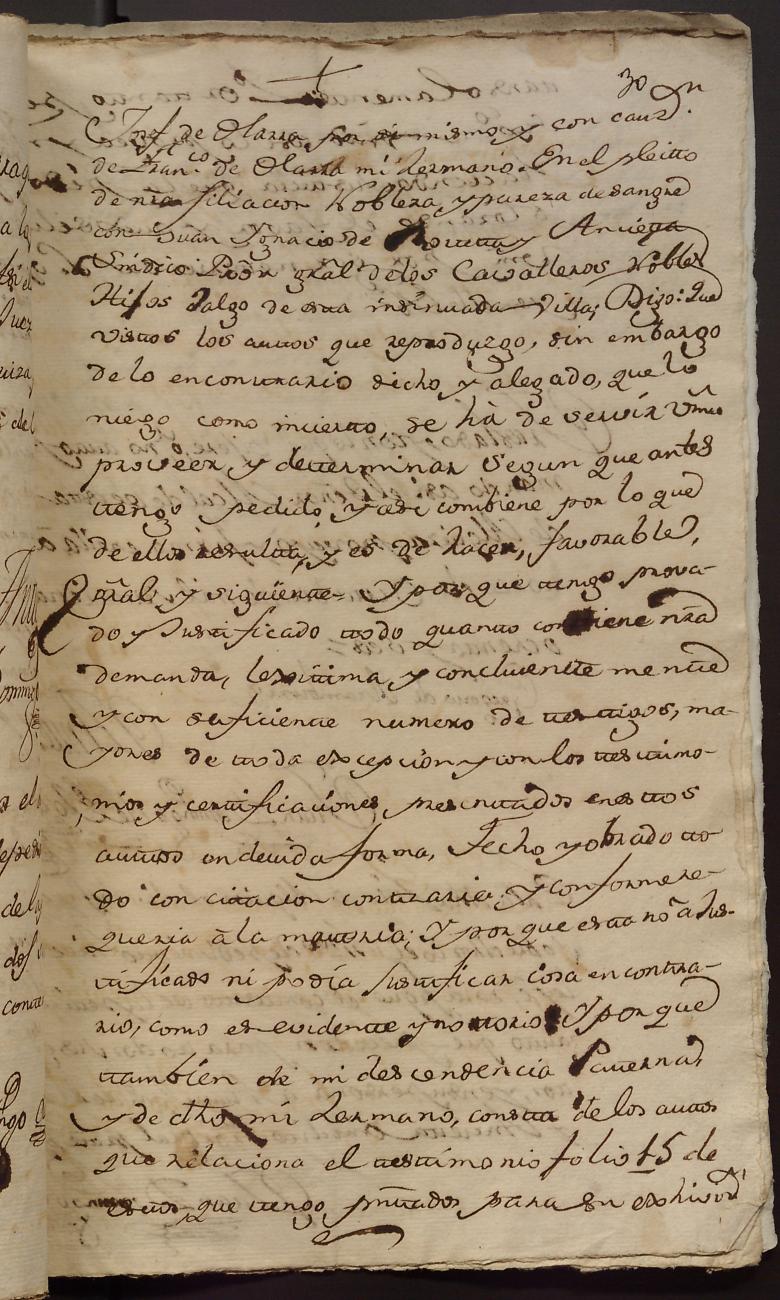 30
Jph de Olarra, por si mismo y con cauz.n
de Fran.co de Olarra mi hermano. En el pleitto
de nra filiacion Nobleza, y pureza de sangre
con Juan Ygnacio de y Anciega
Sindico Pror gral de los Cavalleros Nobles
Hijos dalgo de esta insinuada Villa; Digo: Que
vistos los autos que reproduzgo, sin embargo
de lo encontrario dicho y alegado, que lo
niego como incierto, se hà de servir Vmd
proveer, y determinar segun que antes
tengo pedido, y asi combiene por lo que
de ellos resulta, y es de hacer, favorable,
gral y siguiente. Y por que tengo prova-
do y Justificado ttodo quanto contiene nra
demanda, lexitima, y concluientte mente
y con suficiente numero de testigos, ma-
yores de ttoda excepcion y con los testimo-
nios y certificaciones, presentados en esttos
auttos en devida forma, Fecho y obrado tto-
do con citacion contraria, y conforme re-
queria à la materia; Y por que esta no à Jus-
tificado ni podia Justificar cosa en contra-
rio, como es evidentte y nottorio. Y por que
ttambien de mi descendencia Paterna,
y de dho mi hermano, consta de los autos
que relaciona el testtimonio folio 15 de
estos, que tengo pntados para su exhivon